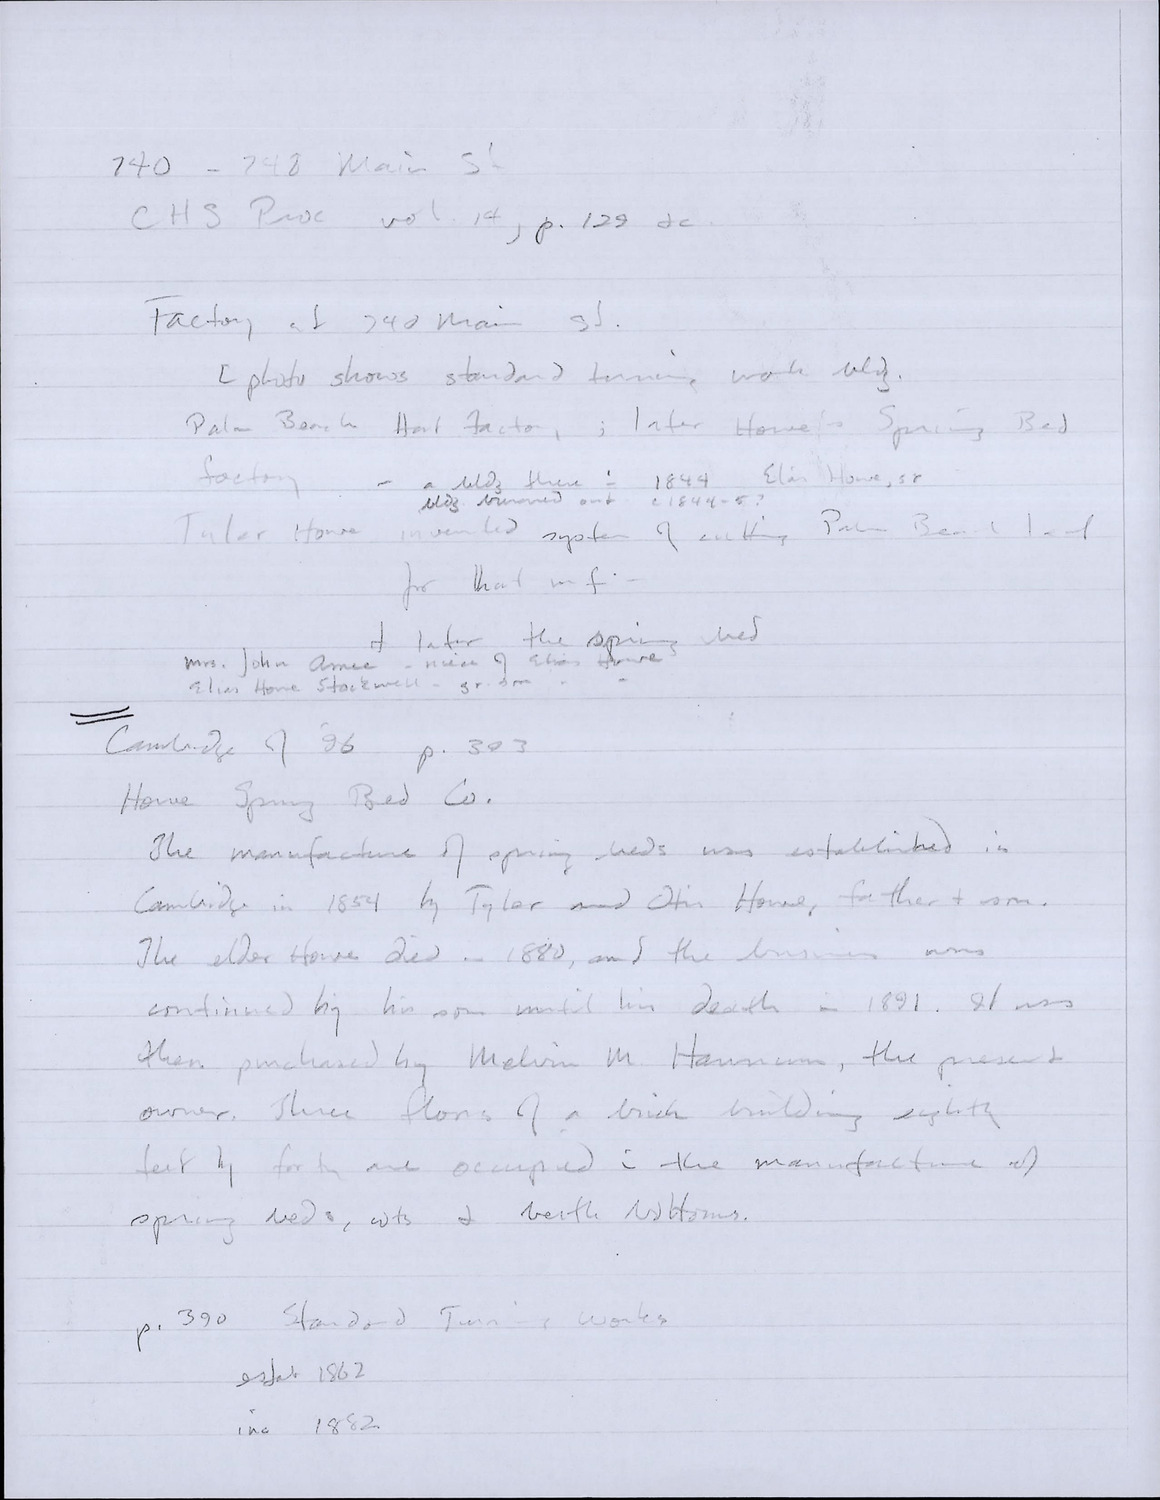 740 - 748 Main St
CHS Proc vol. 14, p. 129 etc.
Factory at 740 Main St.
[photo shows standard turning work bldg.
Palm Beach Hat Factory; later Howe's Spring Bed
factory - a bldg there in 1844 Elias Howe, sr
bldg burned out c1844-5?
Tyler Howe invented system of cutting Palm Beach leaf
for that mf.
& later the spring bed
Mrs. John Amee - niece of Elias Howe
Elias Howe Stockwell - gr. son " "
Cambridge of '96 p. 393
Howe Spring Bed Co.
The manufacture of spring beds was established in
Cambridge in 1854 by Tyler and Otis Howe, father + son.
The elder Howe died in 1880, and the business was
continued by his son until his death in 1891. It was
then purchased by Melvin M. Hannum, the present
owner. Three floors of a brick building eighty
feet by forty are occupied in the manufacture of
spring beds, cots & berth bottoms.
p. 390 Standard Turning Works
estab 1862
inc 1882